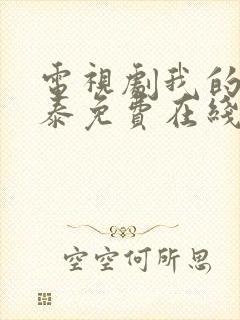 電視劇我的
泰免費在綫
空空何所思